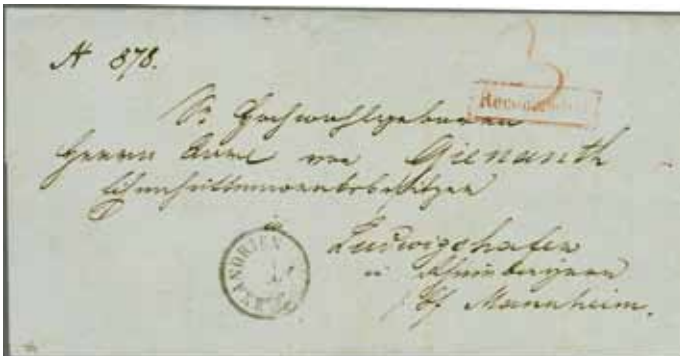 N 878.
3
Recomandirt
Sr Hochwohlgeboren
Herrn Carl von Gienanth
Eisenhüttenwerksbesitzer
in
ALEXANDRIEN
Ludwigshafen
a Rhein bayern
bf Mannheim.